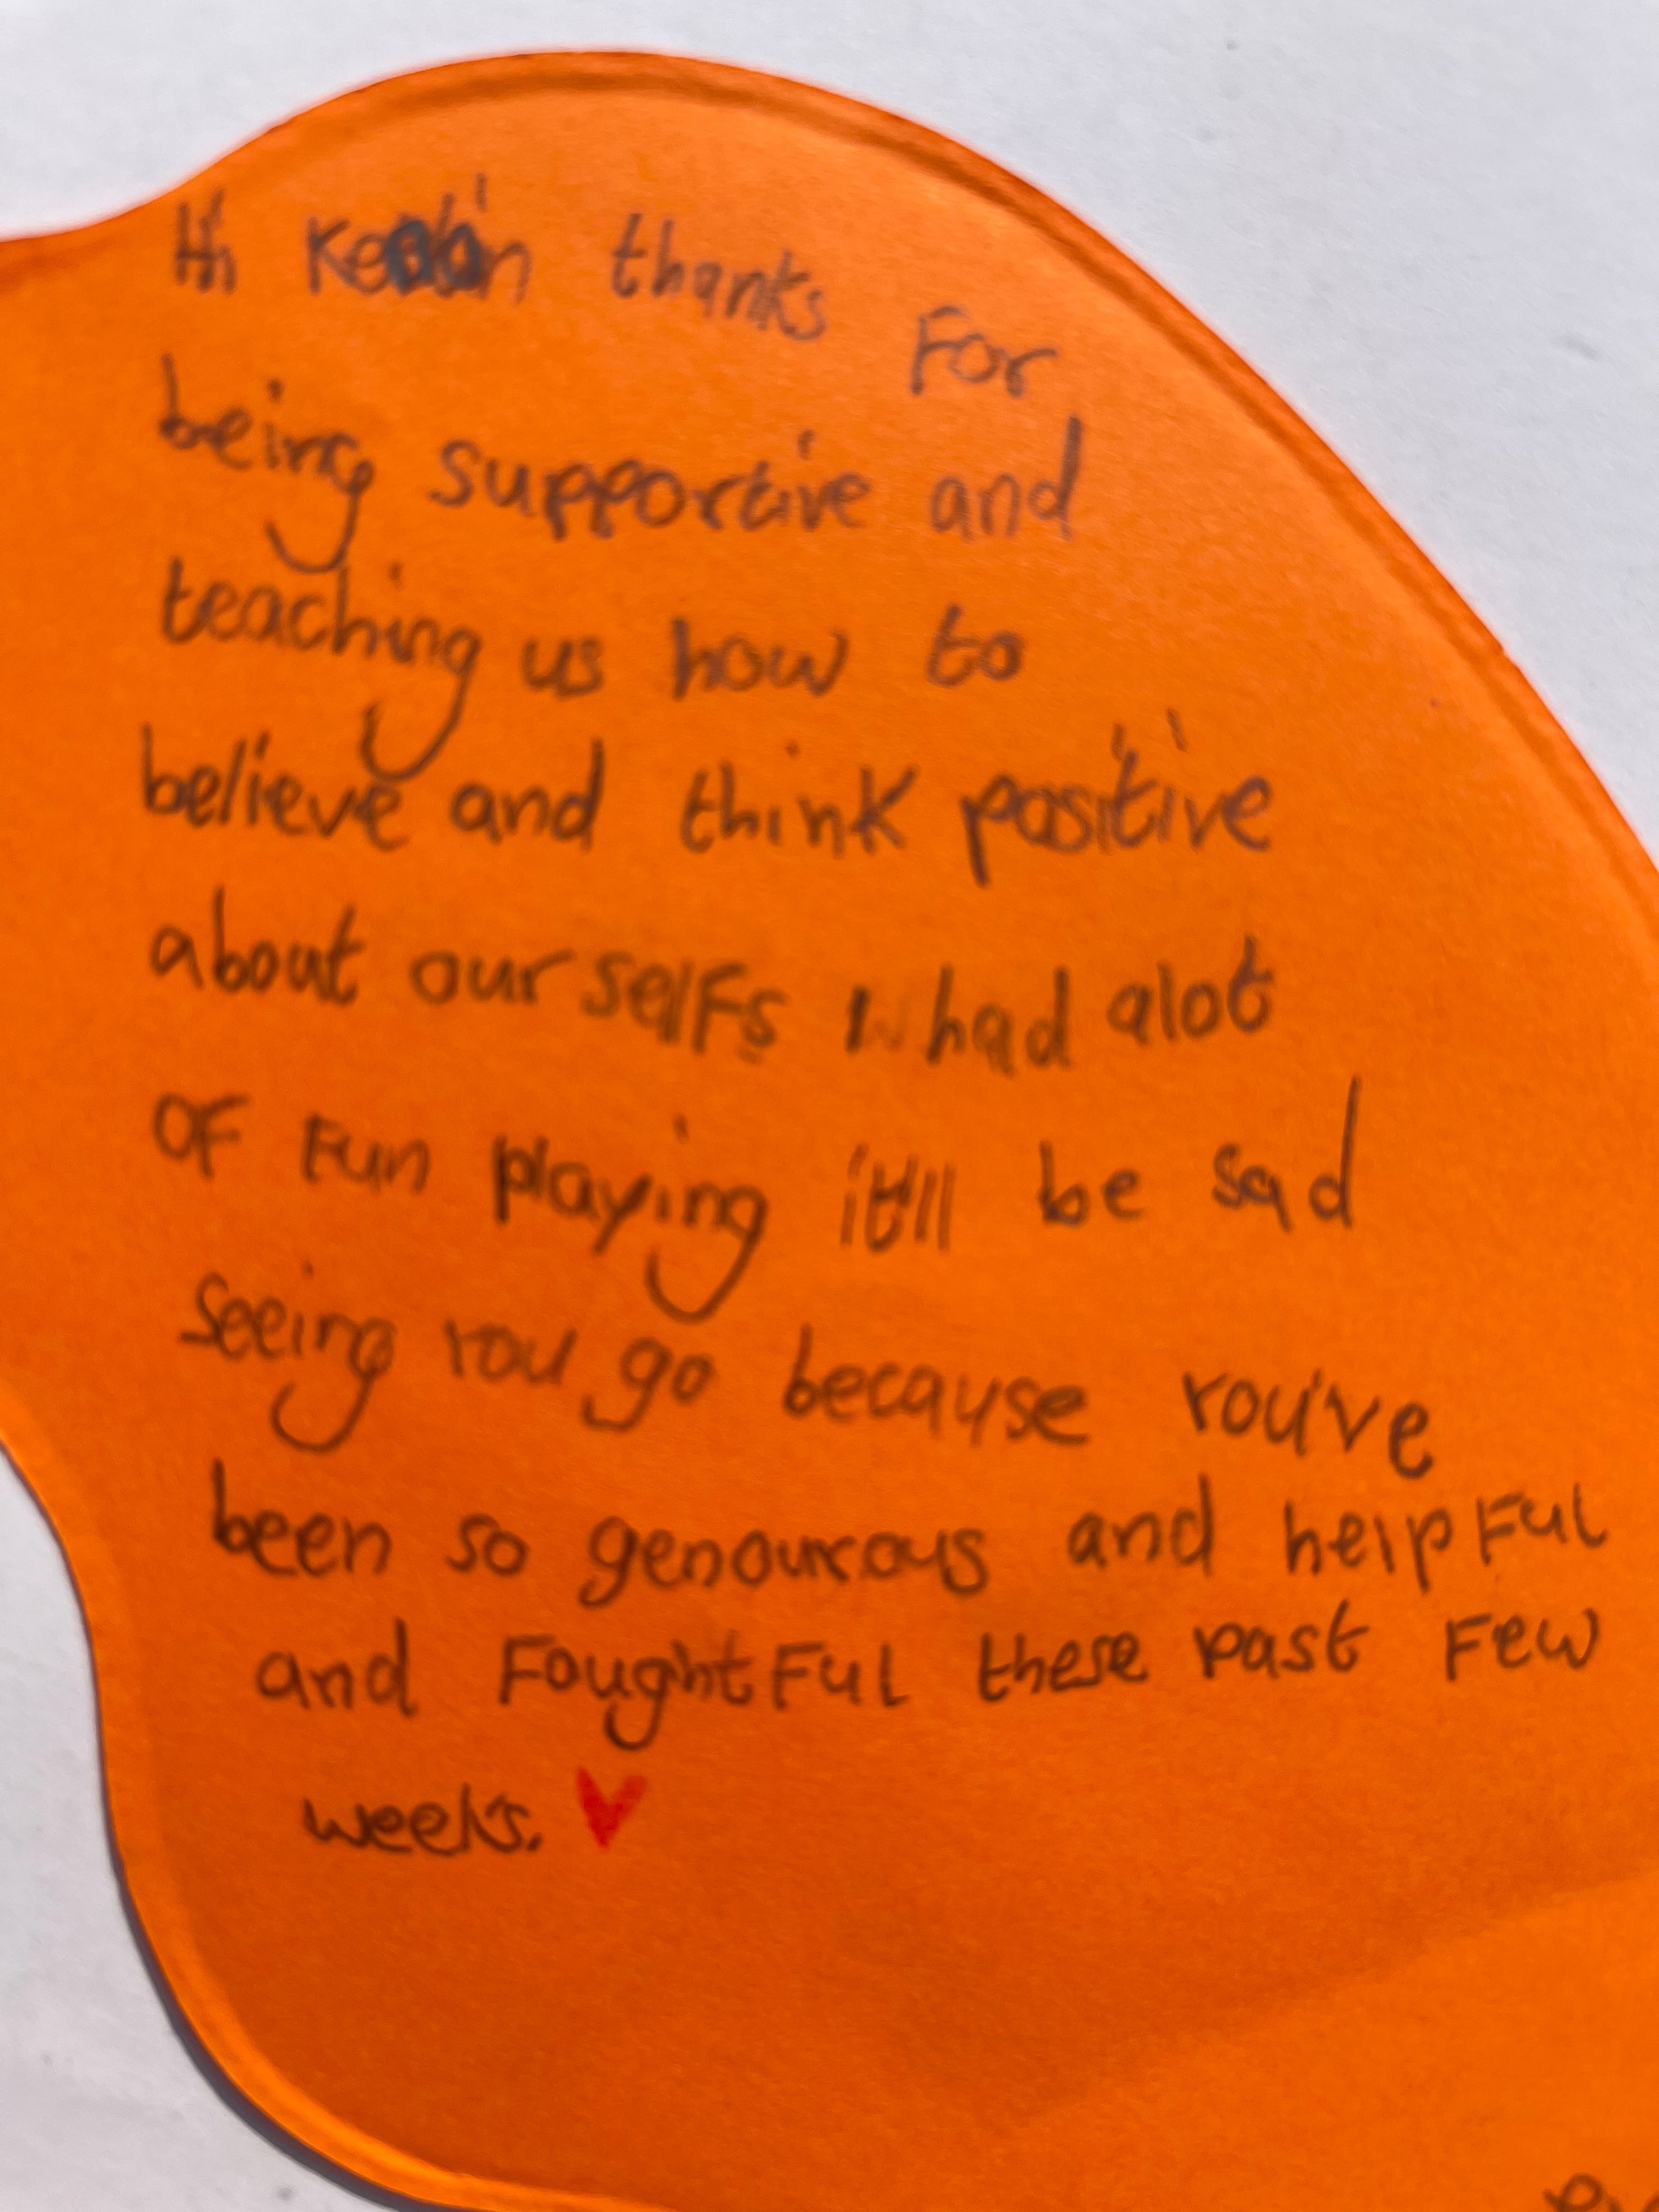 Hi thanks For
being supportive and
teaching us how to
believe and think positive
about our selFs I had alot
OF Fun playing it'll be sad
seeing you go because you've
been so genourous and helpFul
and FoughtFul these past Few
weeks.